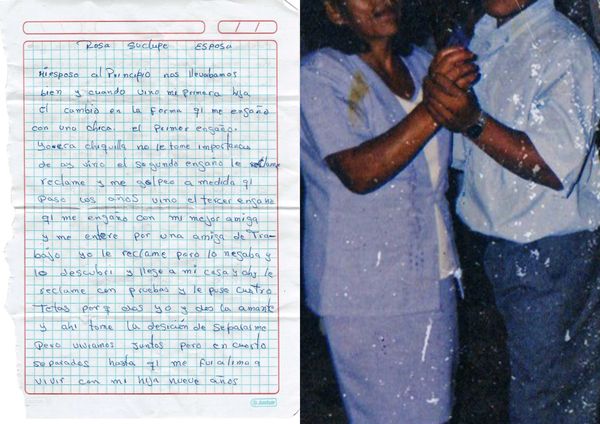 Rosa Suclupe Esposa
Miesposo al Principio nos llevabamos
bien y cuando vino me primera hija
el cambio en la forma qi me engaño
con una chica. el primer engaño.
Yoera chiquilla no le tome importancia
de ay vino el segundo engaño le
reclame y me golpeo a medida qi
paso los años vino el tercer engaño
qi me engaño con mi mejor amiga
y me entere por una amiga de Tra-
bajo yo le reclame paro lo negaba y
lo descubri y llego a mi casa y ahy le
reclame con pruebas y le puso cuatro
Tetas por q dos yo y dos la amante
y ahi tome la desición de separarme
Pero viviamos juntos pero en cuarto
separados hasta qi me fui a lima a
vivir con mi hija nueve años